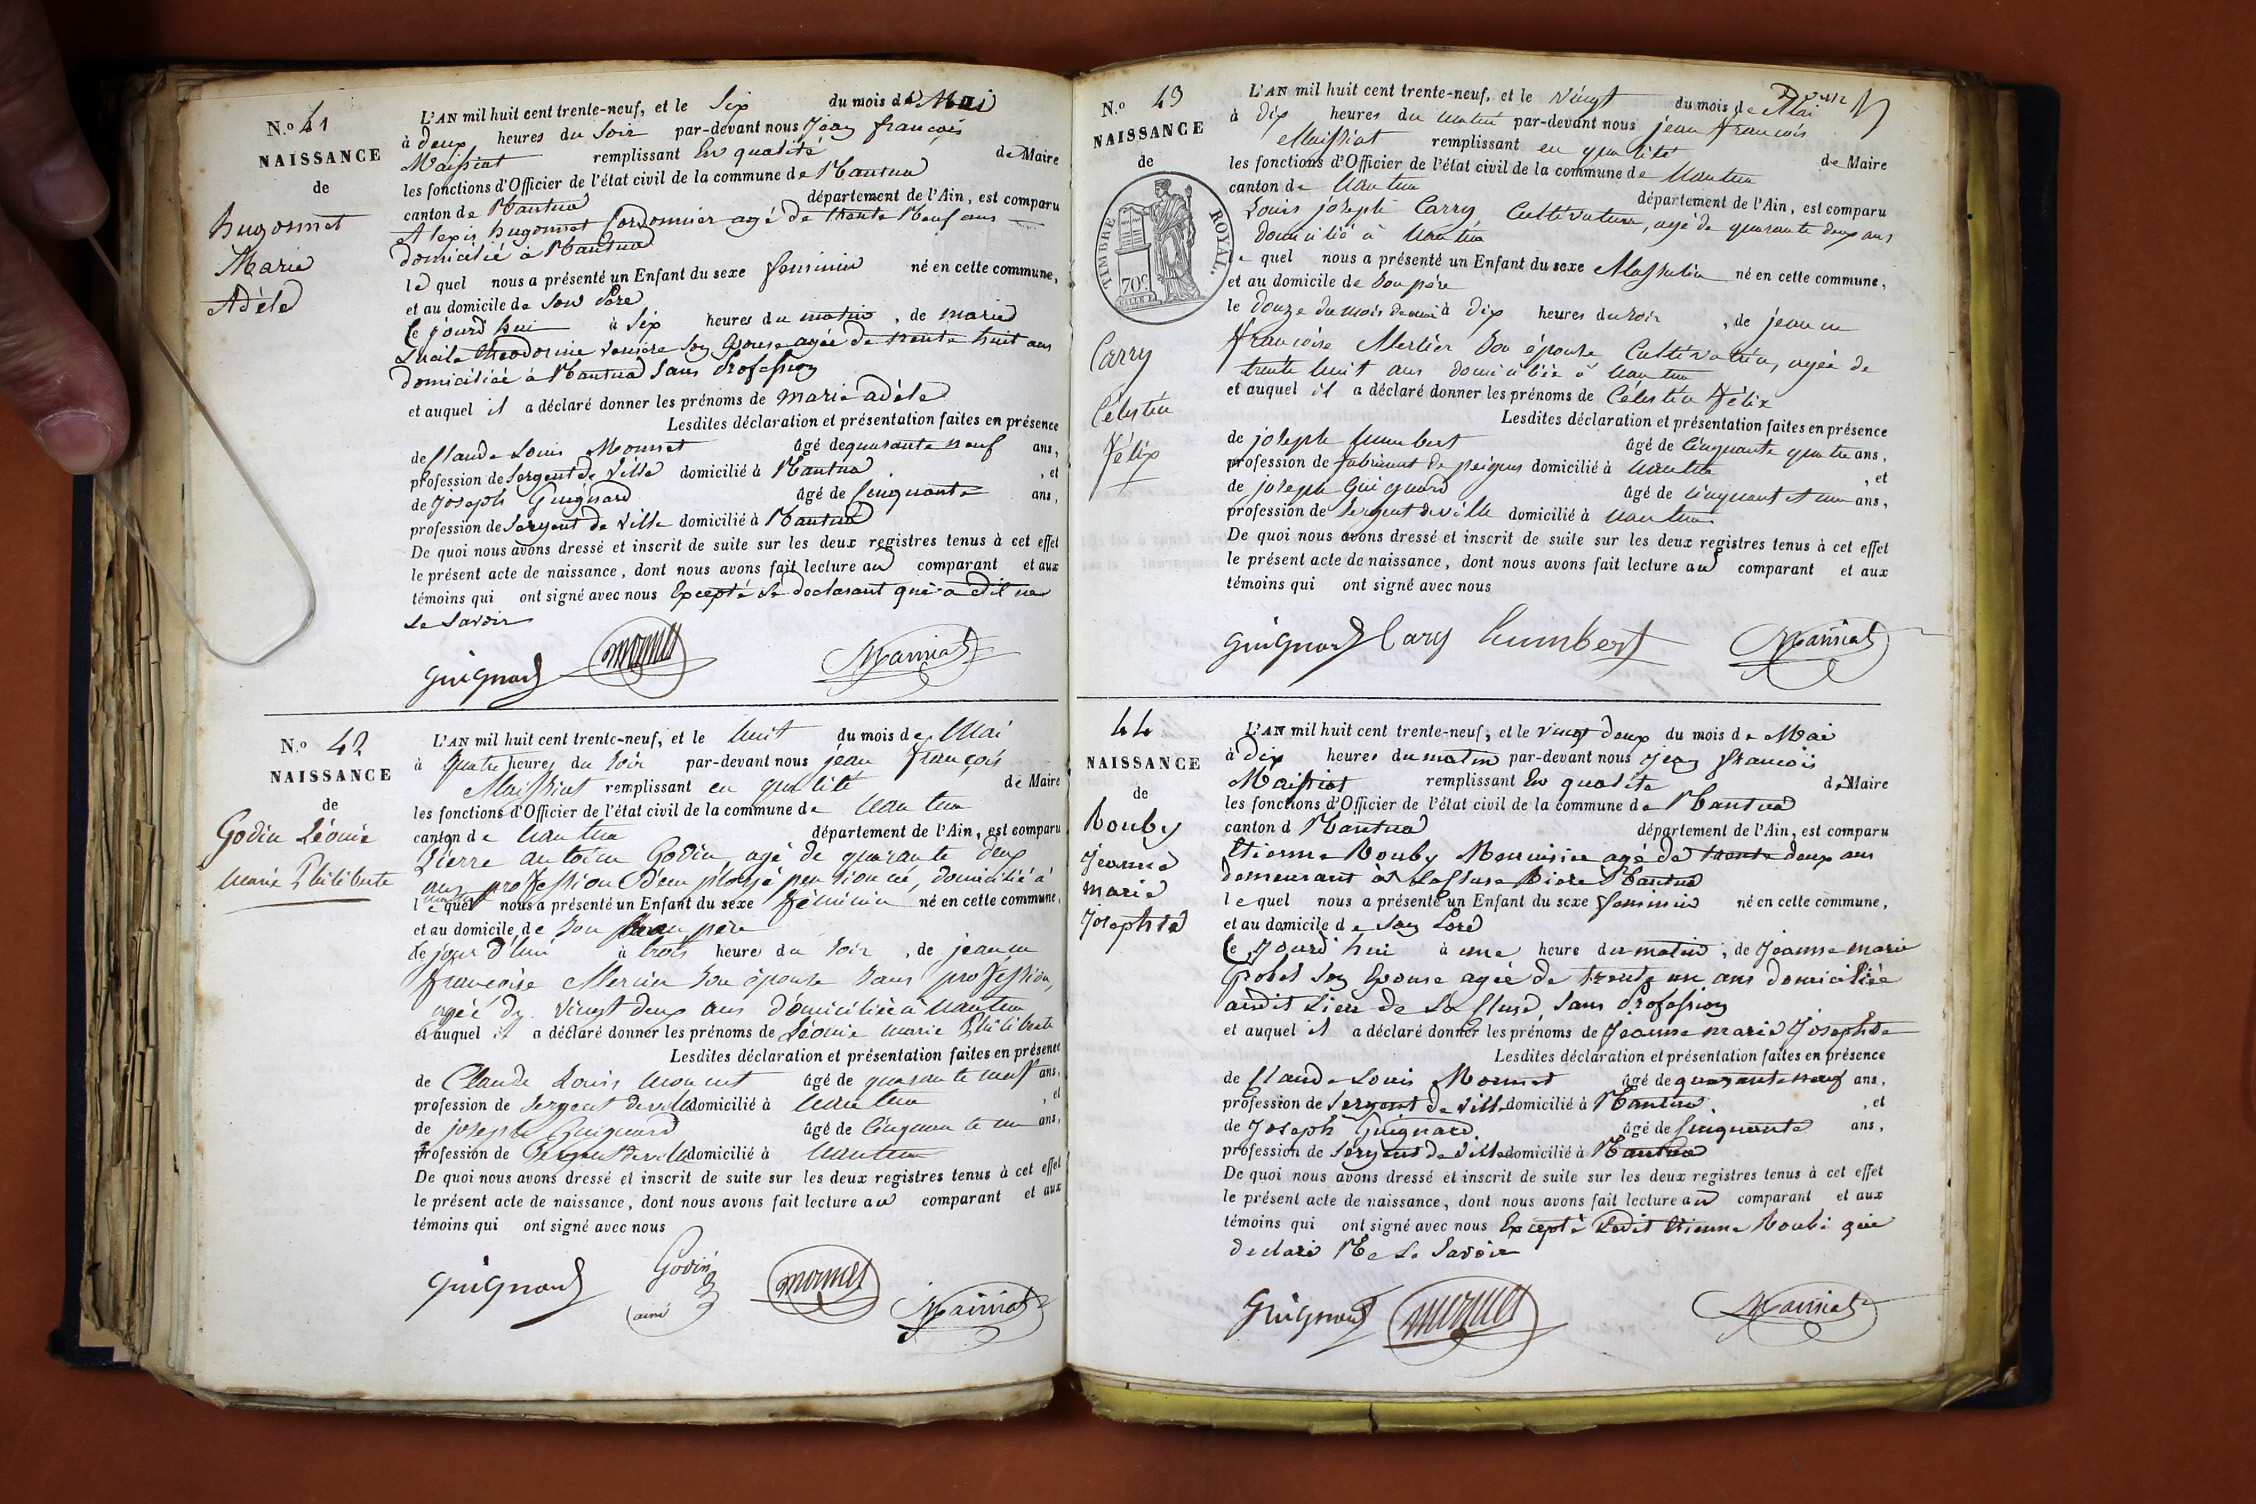 N.º 41
NAISSANCE
de
hugonnet
Marie
Adèle
L'AN mil huit cent trente-neuf, et le Six du mois de Mai
à deux heures du Soir par-devant nous Jean françois
Maissiat remplissant En qualité de Maire
les fonctions d'Officier de l'état civil de la commune de Nantua
canton de Nantua département de l'Ain, est comparu
Alexis hugonnet Cordonnier agé de trente Neuf ans
domicilié à Nantua
le quel nous a présenté un Enfant du sexe feminin né en cette commune,
et au domicile de Son Père
Ce jourd'hui à Six heures du matin, de marie
theodorine Son Epouse agée de trente huit ans
domiciliée à Nantua Sans Profession
et auquel il a déclaré donner les prénoms de marie adèle
Lesdites déclaration et présentation faites en présence
de Claude Louis Monnet âgé de quarante neuf ans,
profession de Sergent de Ville domicilié à Nantua, et
de Joseph Guignard âgé de Cinquante ans,
profession de Sergent de Ville domicilié à Nantua
De quoi nous avons dressé et inscrit de suite sur les deux registres tenus à cet effet
le présent acte de naissance, dont nous avons fait lecture au comparant et aux
témoins qui ont signé avec nous Excepté Le declarant qui a dit ne
Le Savoir
Guignard monnet Maissiat
N.º 42
NAISSANCE
de
Godin Léonie
Marie Philiberte
L'AN mil huit cent trente-neuf, et le huit du mois de Mai
à quatre heures du Soir par-devant nous jean françois
Maissiat remplissant en qualité de Maire
les fonctions d'Officier de l'état civil de la commune de Nantua
canton de Nantua département de l'Ain, est comparu
Pierre antoine Godin, agé de quarante deux
ans profession d'employé pensionné, domicilié à
nantua
le quel nous a présenté un Enfant du sexe féminin né en cette commune,
et au domicile de Son père
le jour d'hui à trois heure du Soir, de jeanne
françoise Mercier Son épouse Sans profession,
agée de vingt deux ans domiciliée à Nantua
et auquel il a déclaré donner les prénoms de Léonie Marie Philiberte
Lesdites déclaration et présentation faites en présence
de Claude Louis Monnet âgé de quarante neuf ans,
profession de Sergent de ville domicilié à Nantua, et
de joseph Guignard âgé de Cinquante un ans,
profession de Sergent de ville domicilié à Nantua
De quoi nous avons dressé et inscrit de suite sur les deux registres tenus à cet effet
le présent acte de naissance, dont nous avons fait lecture au comparant et aux
témoins qui ont signé avec nous
Guignard Godin ainé monnet Maissiat
N.º 43
NAISSANCE
de
TIMBRE ROYAL.
70c
Carry
Célestin
Félix
L'AN mil huit cent trente-neuf, et le vingt du mois de Mai
à dix heures du matin par-devant nous jean françois
Maissiat remplissant en qualité de Maire
les fonctions d'Officier de l'état civil de la commune de Nantua
canton de Nantua département de l'Ain, est comparu
Louis joseph Carry, Cultivateur, agé de quarante deux ans
domicilié à Nantua
le quel nous a présenté un Enfant du sexe Masculin né en cette commune,
et au domicile de Son père
le douze du mois de mai à dix heures du soir, de jeanne
françoise Mercier Son épouse Cultivatrice, agée de
trente huit ans domiciliée à Nantua
et auquel il a déclaré donner les prénoms de Célestin Félix
Lesdites déclaration et présentation faites en présence
de joseph humbert âgé de Cinquante quatre ans,
profession de fabricant de peignes domicilié à Nantua, et
de joseph Guignard âgé de cinquant et un ans,
profession de Sergent de ville domicilié à Nantua
De quoi nous avons dressé et inscrit de suite sur les deux registres tenus à cet effet
le présent acte de naissance, dont nous avons fait lecture au comparant et aux
témoins qui ont signé avec nous
Guignard Cary humbert Maissiat
44
NAISSANCE
de
Bouby
Jeanne
marie
Josephte
L'AN mil huit cent trente-neuf, et le vingt deux du mois de Mai
à Dix heures du matin par-devant nous Jean françois
Maissiat remplissant En qualité de Maire
les fonctions d'Officier de l'état civil de la commune de Nantua
canton d Nantua département de l'Ain, est comparu
Etienne Bouby Menuisier agé de trente deux ans
demeurant à La Cluse Nantua
le quel nous a présenté un Enfant du sexe feminin né en cette commune,
et au domicile de Son Père
Ce jourd'hui à une heure du matin, de Jeanne marie
Grobet Son Epouse agée de trente un ans domiciliée
audit Lieu de La Cluse, Sans Profession
et auquel il a déclaré donner les prénoms de Jeanne marie Josephte
Lesdites déclaration et présentation faites en présence
de Claude Louis Monnet âgé de quarante neuf ans,
profession de Sergent de Ville domicilié à Nantua, et
de Joseph Guignard âgé de Cinquante ans,
profession de Sergent de Ville domicilié à Nantua
De quoi nous avons dressé et inscrit de suite sur les deux registres tenus à cet effet
le présent acte de naissance, dont nous avons fait lecture au comparant et aux
témoins qui ont signé avec nous Excepté Ledit Etienne Boubi qui
declaré Ne Le Savoir
Guignard monnet Maissiat